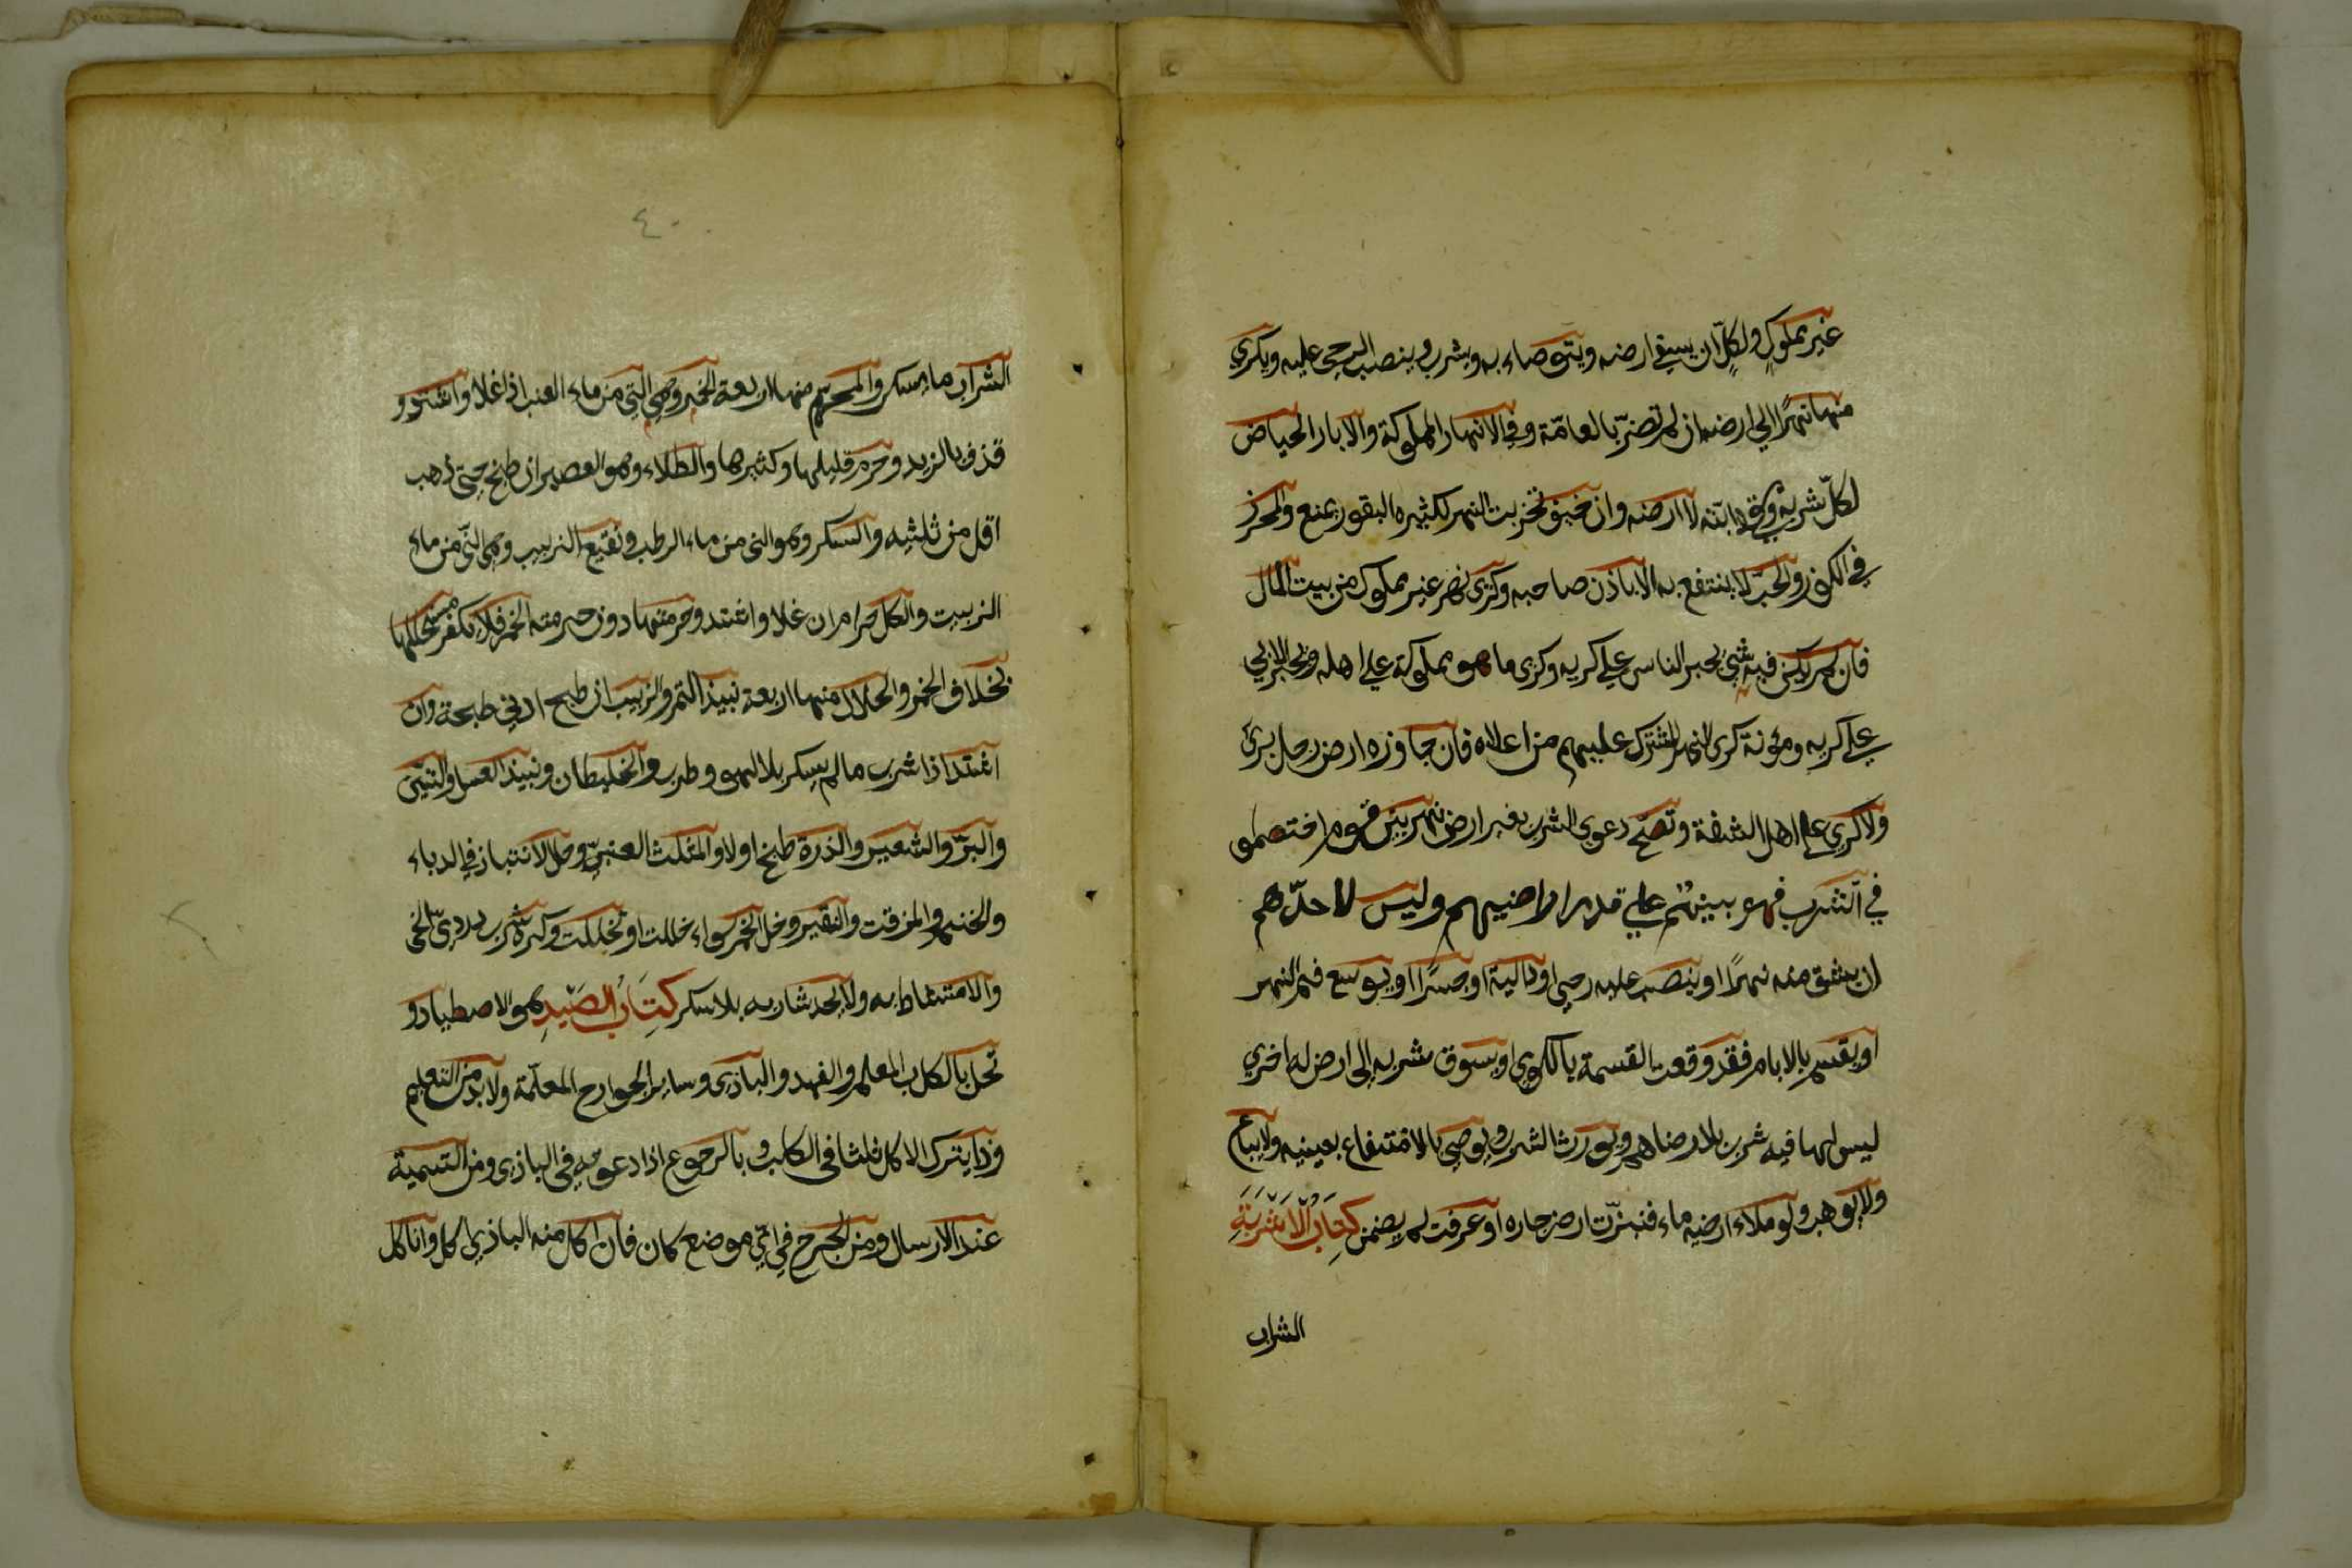 غير مملوك ولكلّ ان يسقي ارضه ويتوضاء به ويشرب وينصب الرحى عليه ويكري
منها نهرًا الي ارضه ان لم تضرّ بالعامّة وفي الانهار المملوكة والابار الحياض
لكلّ شربه وسقي دابته لا ارضه وان خيف تخريب النهر لكثيره البقور يمنع والمحرز
في الكوز والحبّ لا ينتفع به الا باذن صاحبه وكري نهر غير مملوك من بيت المال
فان لم يكن فيه شئ يجبر الناس علي كريه وكري ما هو مملوكة علي اهله ويجبر الابي
علي كريه ومؤنة كري النهر المشترك عليهم من اعلاه فان جاوزه ارض رجل برئ
ولا كري علي اهل الشفة وتصح دعوي الشرب بغير ارض نهر بين قوم اختصموا
في الشرب فهو بينهم علي قدر اراضيهم وليس لاحدهم
ان يشق منه نهرًا او ينصب عليه رحي او دالية او جسرًا او يوسع فم النهر
او يقسم بالايام فقد وقعت القسمة بالكوي او يسوق شربه الى ارض له اخري
ليس لها فيه شرب بلا رضاهم ويورث الشرب ويوصي بالانتفاع بعينه ولا يباع
ولا يوهب ولو ملاء ارضه ماء فنزّت ارض جاره او غرقت لم يضمن كتاب الاشربة
الشراب
٤٠
الشراب ما يسكر والمحرم منها اربعة الخمر وهي التي من ماء العنب اذا غلا واشتد و
قذف بالزبد وحرم قليلها وكثيرها والطلاء وهو العصير ان طبخ حتي ذهب
اقل من ثلثيه والسكر وهو الني من ماء الرطب ونقيع الزبيب وهي الني من ماء
الزبيب والكل حرام ان غلا واشتد وحرمتها دون حرمته الخمر فلا يكفر مستحلها
بخلاف الخمر والحلال منها اربعة نبيذ التمر والزبيب ان طبح ادني طبحة وان
اشتد اذا شرب مالم يسكر بلا لهو وطرب والخليطان ونبيذ العسل والتين
والبرّ والشعير والذرة طبخ او لا والمثلث العنبيّ وحل الانتباذ في الدباء
والحنتم والمزفت والنقير وخل الخمر سواء خللت او تخللت وكره شرب دردي الخمر
والامتشاط به ولا يحد شاربه بلا سكر كتاب الصيد هو الاصطياد و
تحل بالكلب المعلم والفهد والبازي وساير الجوارح المعلمة ولا بد من التعليم
وذا يترك الاكل ثلثا في الكلب وبالرجوع اذا دعوته في البازي ومن التسمية
عند الارسال ومن الجرح في اي موضع كان فان اكل منه البازي اكل وان اكل